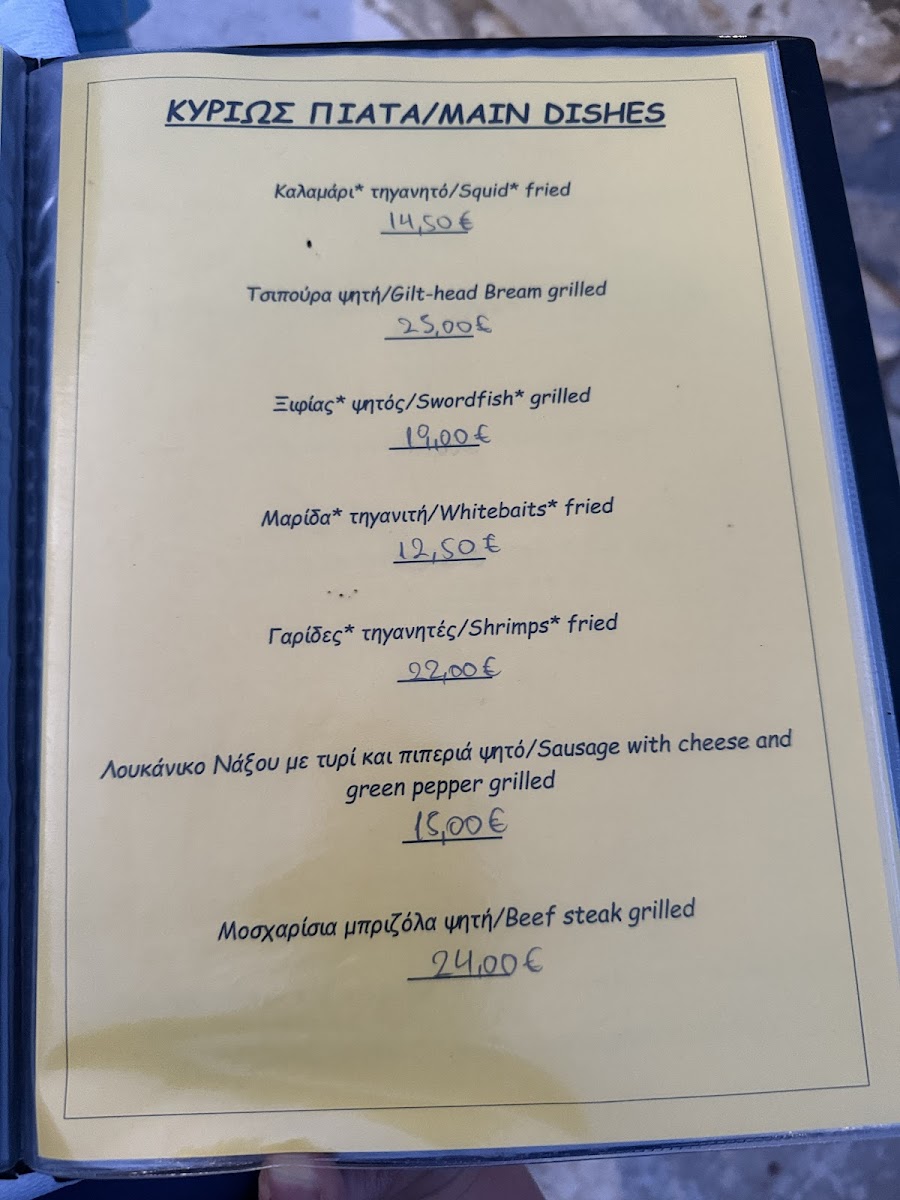 ΚΥΡΙΩΣ ΠΙΑΤΑ/MAIN DISHES
Καλαμάρι* τηγανητό/Squid* fried
14,50€
Τσιπούρα ψητή/Gilt-head Bream grilled
25,00€
Ξιφίας* ψητός/Swordfish* grilled
19,00€
Μαρίδα* τηγανιτή/Whitebaits* fried
12,50€
Γαρίδες* τηγανητές/Shrimps* fried
22,00€
Λουκάνικο Νάξου με τυρί και πιπεριά ψητό/Sausage with cheese and
green pepper grilled
15,00€
Μοσχαρίσια μπριζόλα ψητή/Beef steak grilled
24,00€